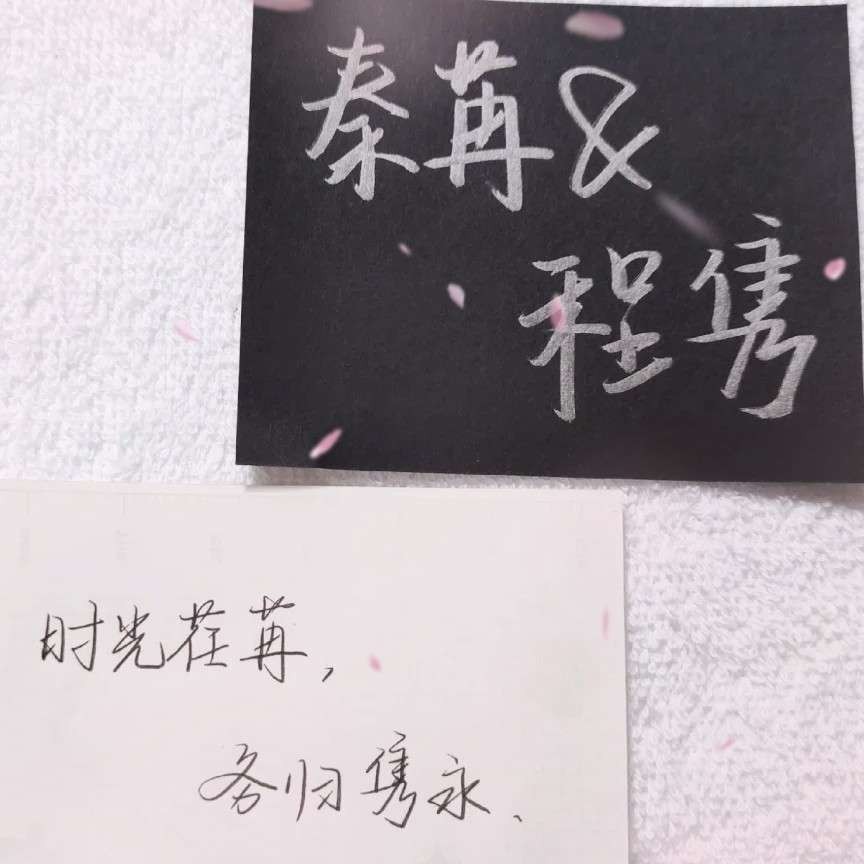 秦苒&
程隽
时光荏苒，
务归隽永、